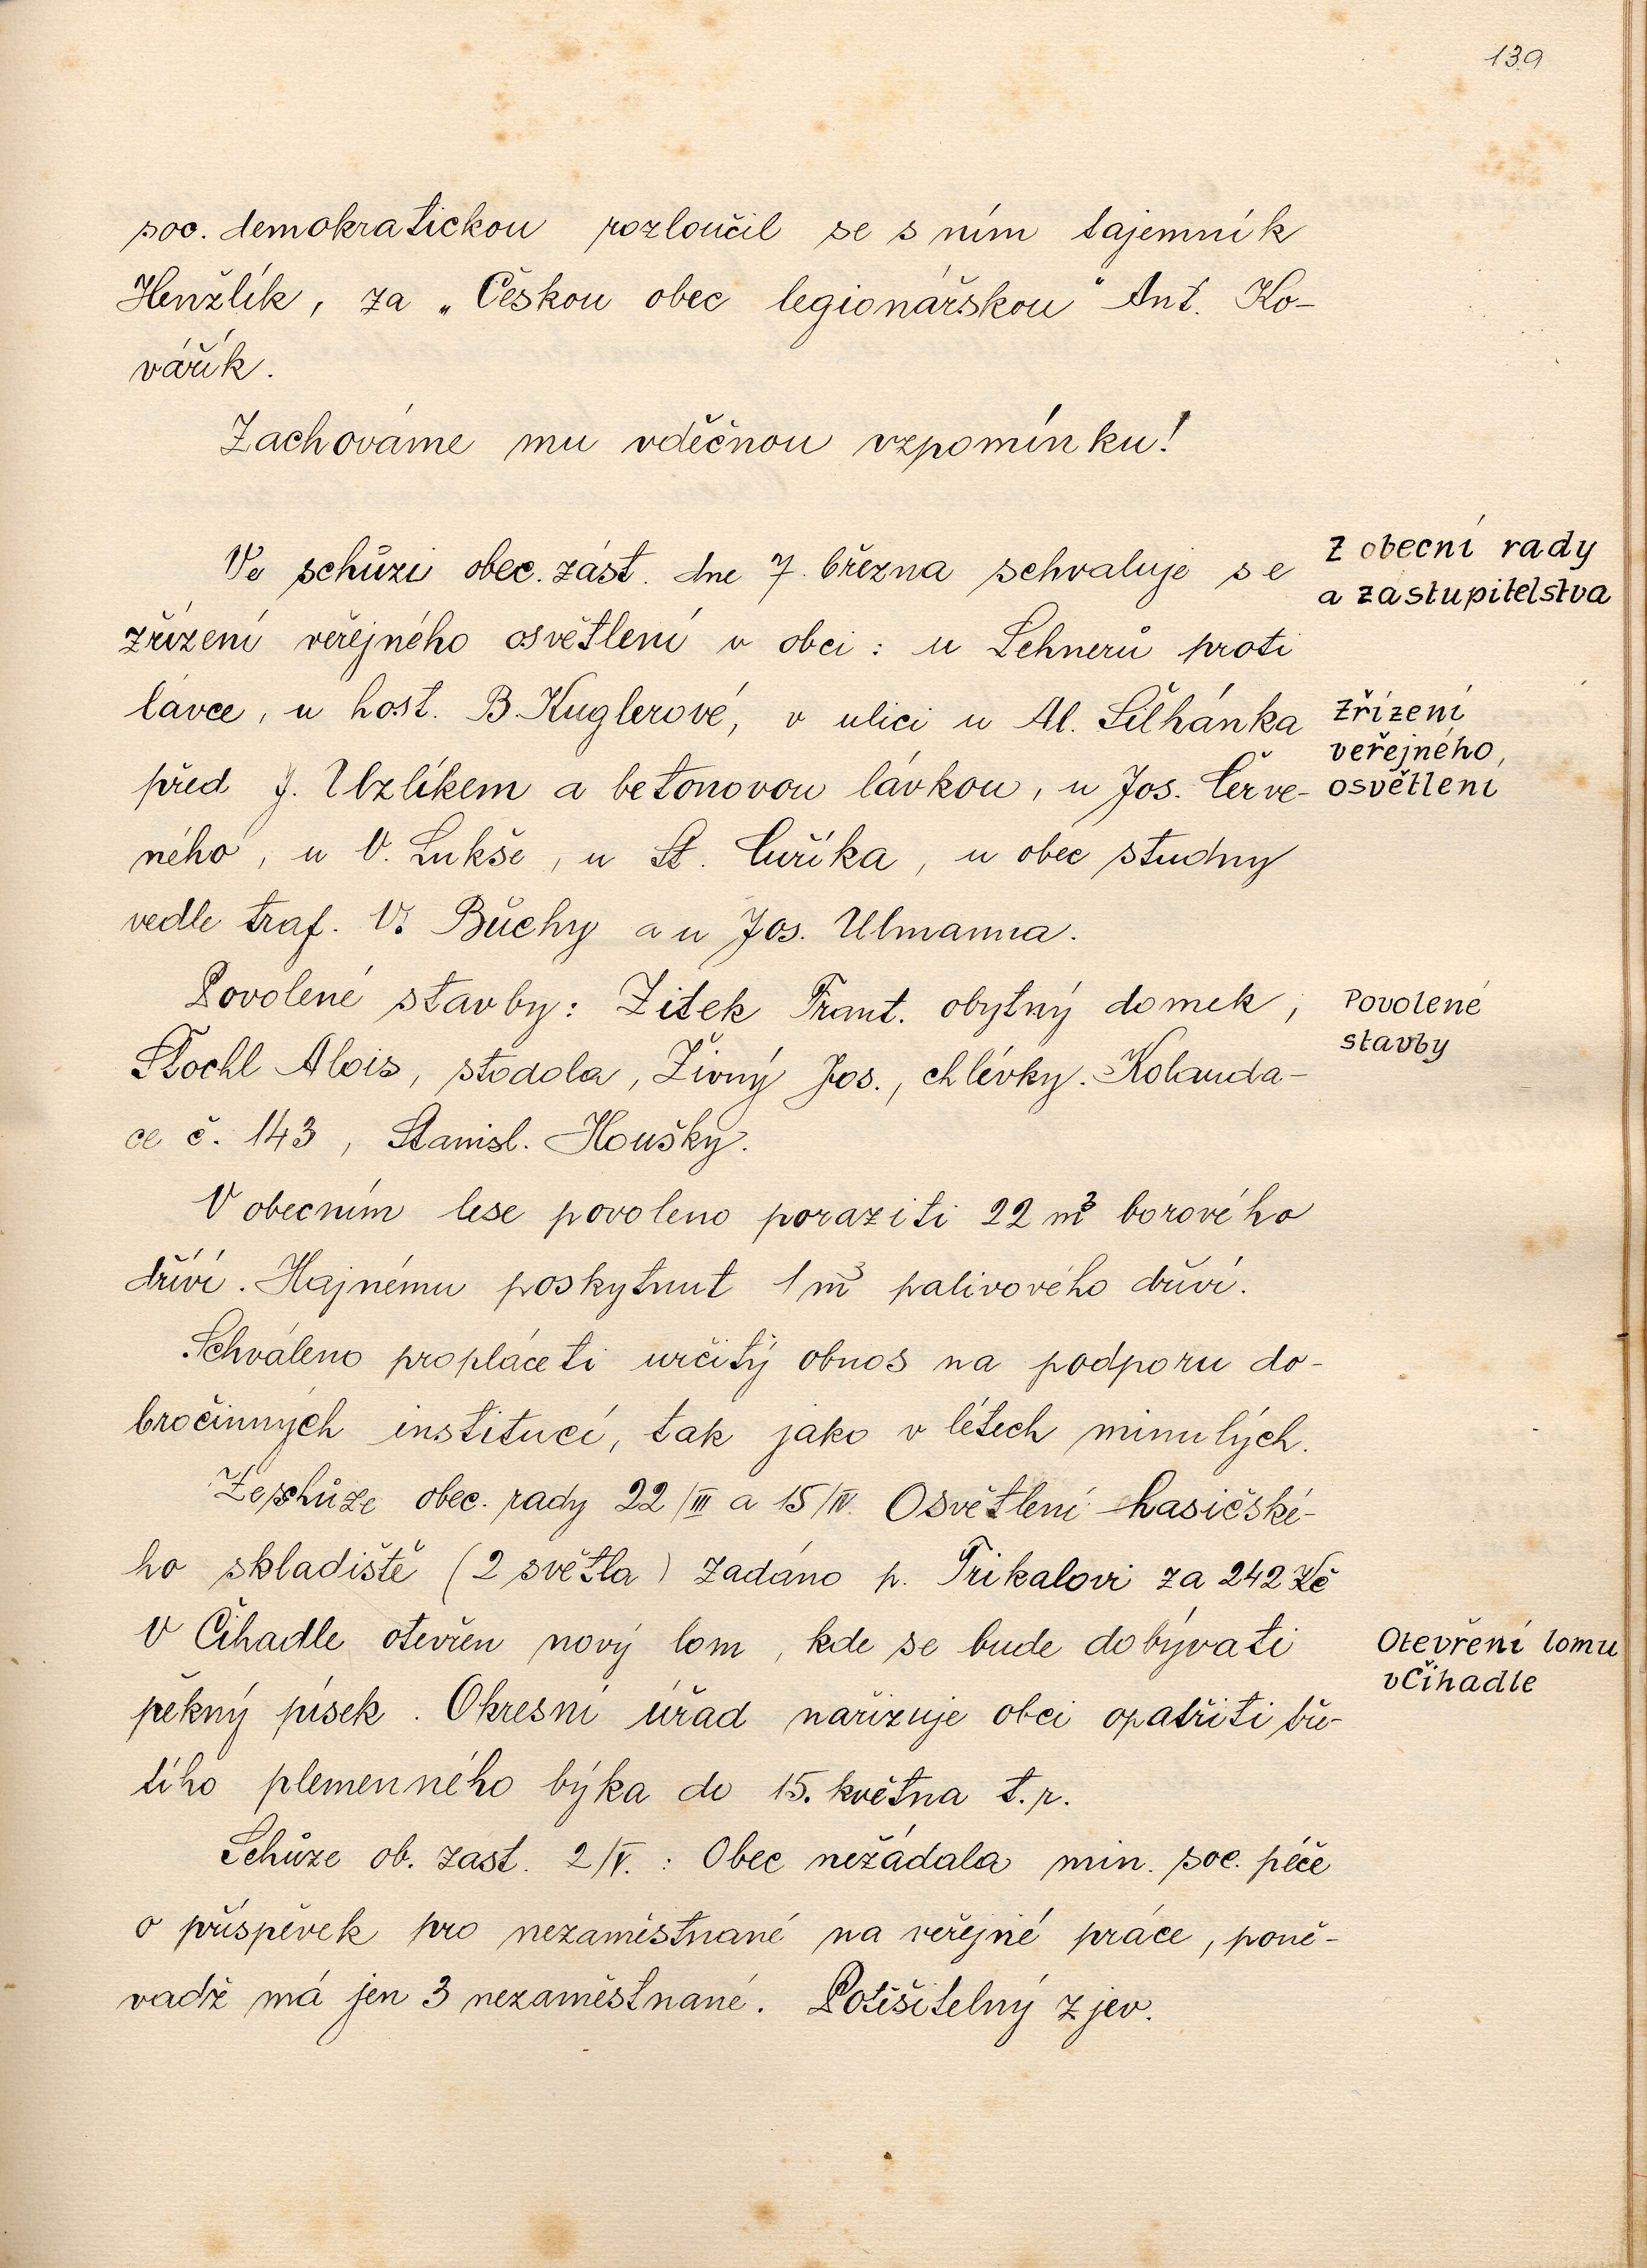 139
soc. demokratickou rozloučil se s ním tajemník
Henžlík, za „Českou obec legionářskou" Ant. Ko-
vářík.
Zachováme mu vděčnou vzpomínku!
Z obecní rady
a zastupitelstva
Ve schůzi obec. zást. dne 7. března schvaluje se
zřízení veřejného osvětlení v obci: u Lehnerů proti
lávce, u host. B. Kuglerové, v ulici u Al. Šilhánka
Zřízení
veřejného,
osvětlení
před J. Uzlíkem a betonovou lávkou, u Jos. Červe-
ného, u V. Lukše, u St. Cuříka, u obec studny
vedle traf. V. Bůchy a u Jos. Ulmanna.
Povolené stavby: Zitek Frant. obytný domek,
Povolené
stavby
Štochl Alois, stodola, Živný Jos., chlévky. Kolauda-
ce č. 143, Stanisl. Houšky.
V obecním lese povoleno poraziti 22 m³ borového
dříví. Hajnému poskytnut 1 m³ palivového dříví.
Schváleno propláceti určitý obnos na podporu do-
bročinných institucí, tak jako v létech minulých.
Ze schůze obec. rady 22/III a 15/IV. Osvětlení hasičské-
ho skladiště (2 světla) zadáno p. Trikalovi za 242 Kč
V Čihadle otevřen nový lom, kde se bude dobývati
Otevření lomu
v Čihadle
pěkný písek. Okresní úřad nařizuje obci opatřiti tře-
tího plemenného býka do 15. května t. r.
Schůze ob. zast. 2/V. : Obec nežádala min. soc. péče
o příspěvek pro nezaměstnané na veřejné práce, poně-
vadž má jen 3 nezaměstnané. Potěšitelný zjev.